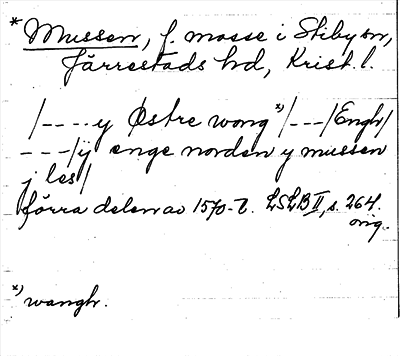 * Mussen, f. mosse i Stiby sn,
Järrestads hd, Krist. l.
/----y Østre wong *)/---/Engh/
---/ij enge norden y mussen
j les/
förra delen av 1570-t. LSLB II, s. 264.
orig.
*) wangh.